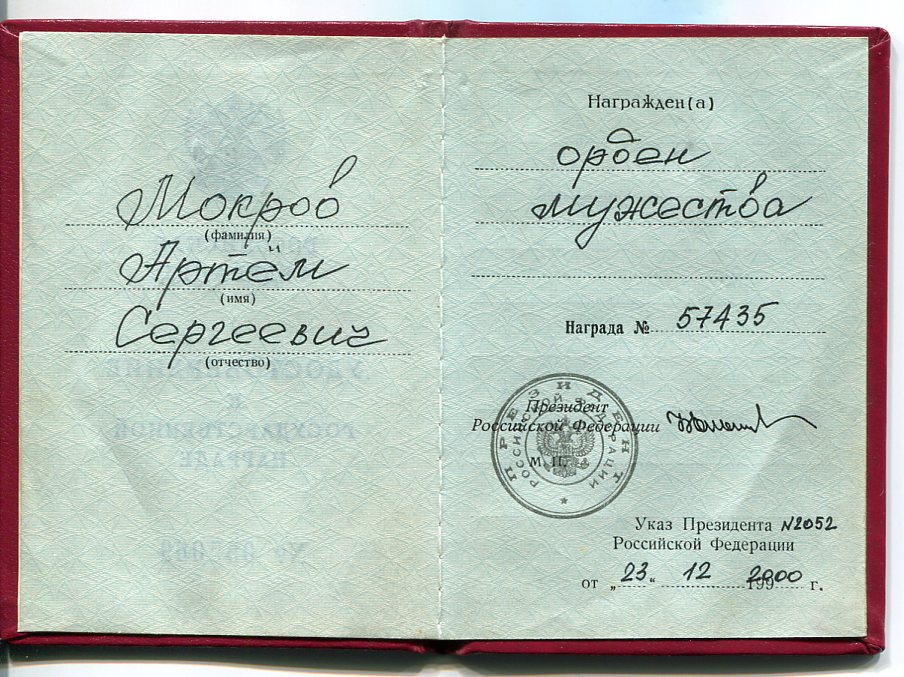 Мокров
(фамилия)
Артём
(имя)
Сергеевич
(отчество)
Награжден(а)
орден
мужества
Награда № 57435
ПРЕЗИДЕНТ
РОССИЙСКОЙ ФЕДЕРАЦИИ
Президент
Российской Федерации
М. П.
Указ Президента N2052
Российской Федерации
от „23“ 12 2000 г.